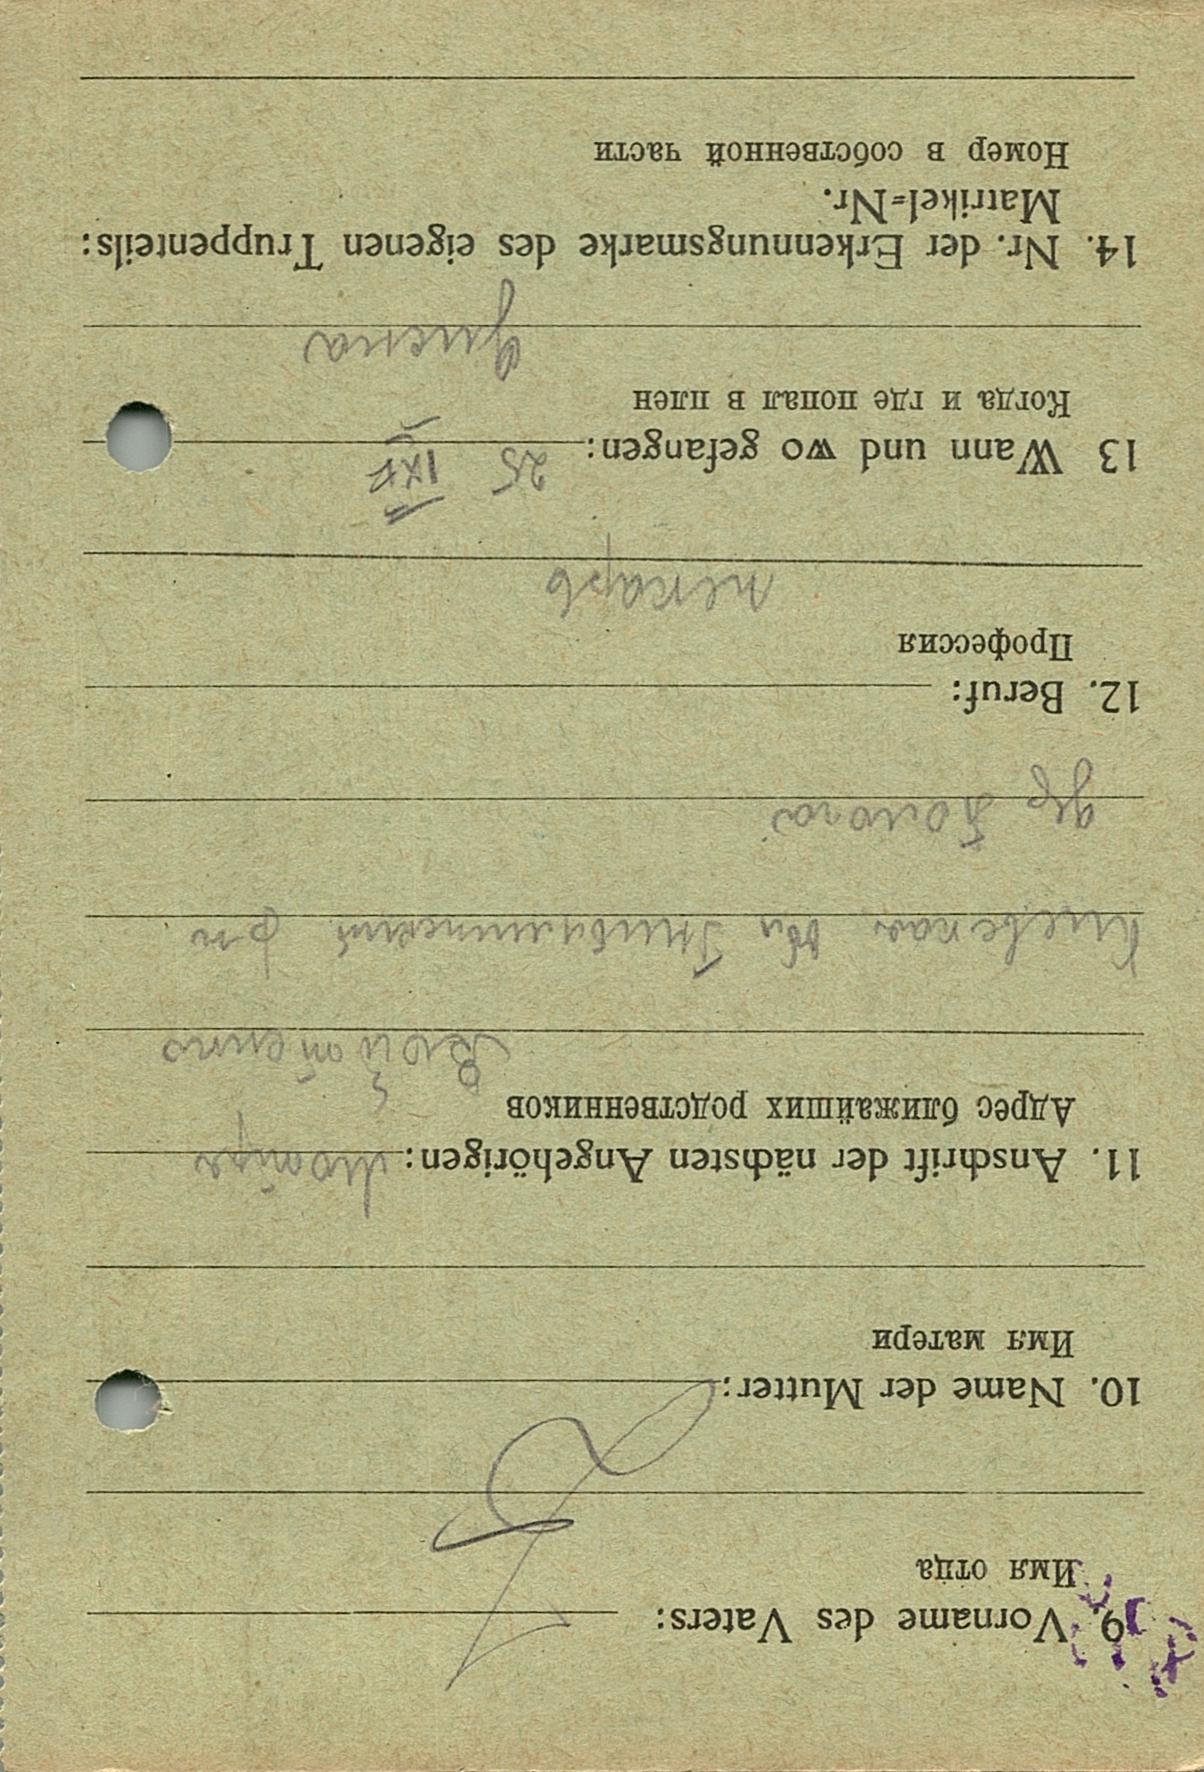 9. Vorname des Vaters:
Имя отца
10. Name der Mutter:
Имя матери
11. Anschrift der nächsten Angehörigen:
Адрес ближайших родственников
Киевская обл
др
12. Beruf:
Профессия
пекарь
13 Wann und wo gefangen: 25 IX
Когда и где попал в плен
14. Nr. der Erkennungsmarke des eigenen Truppenteils:
Matrikel=Nr.
Номер в собственной части